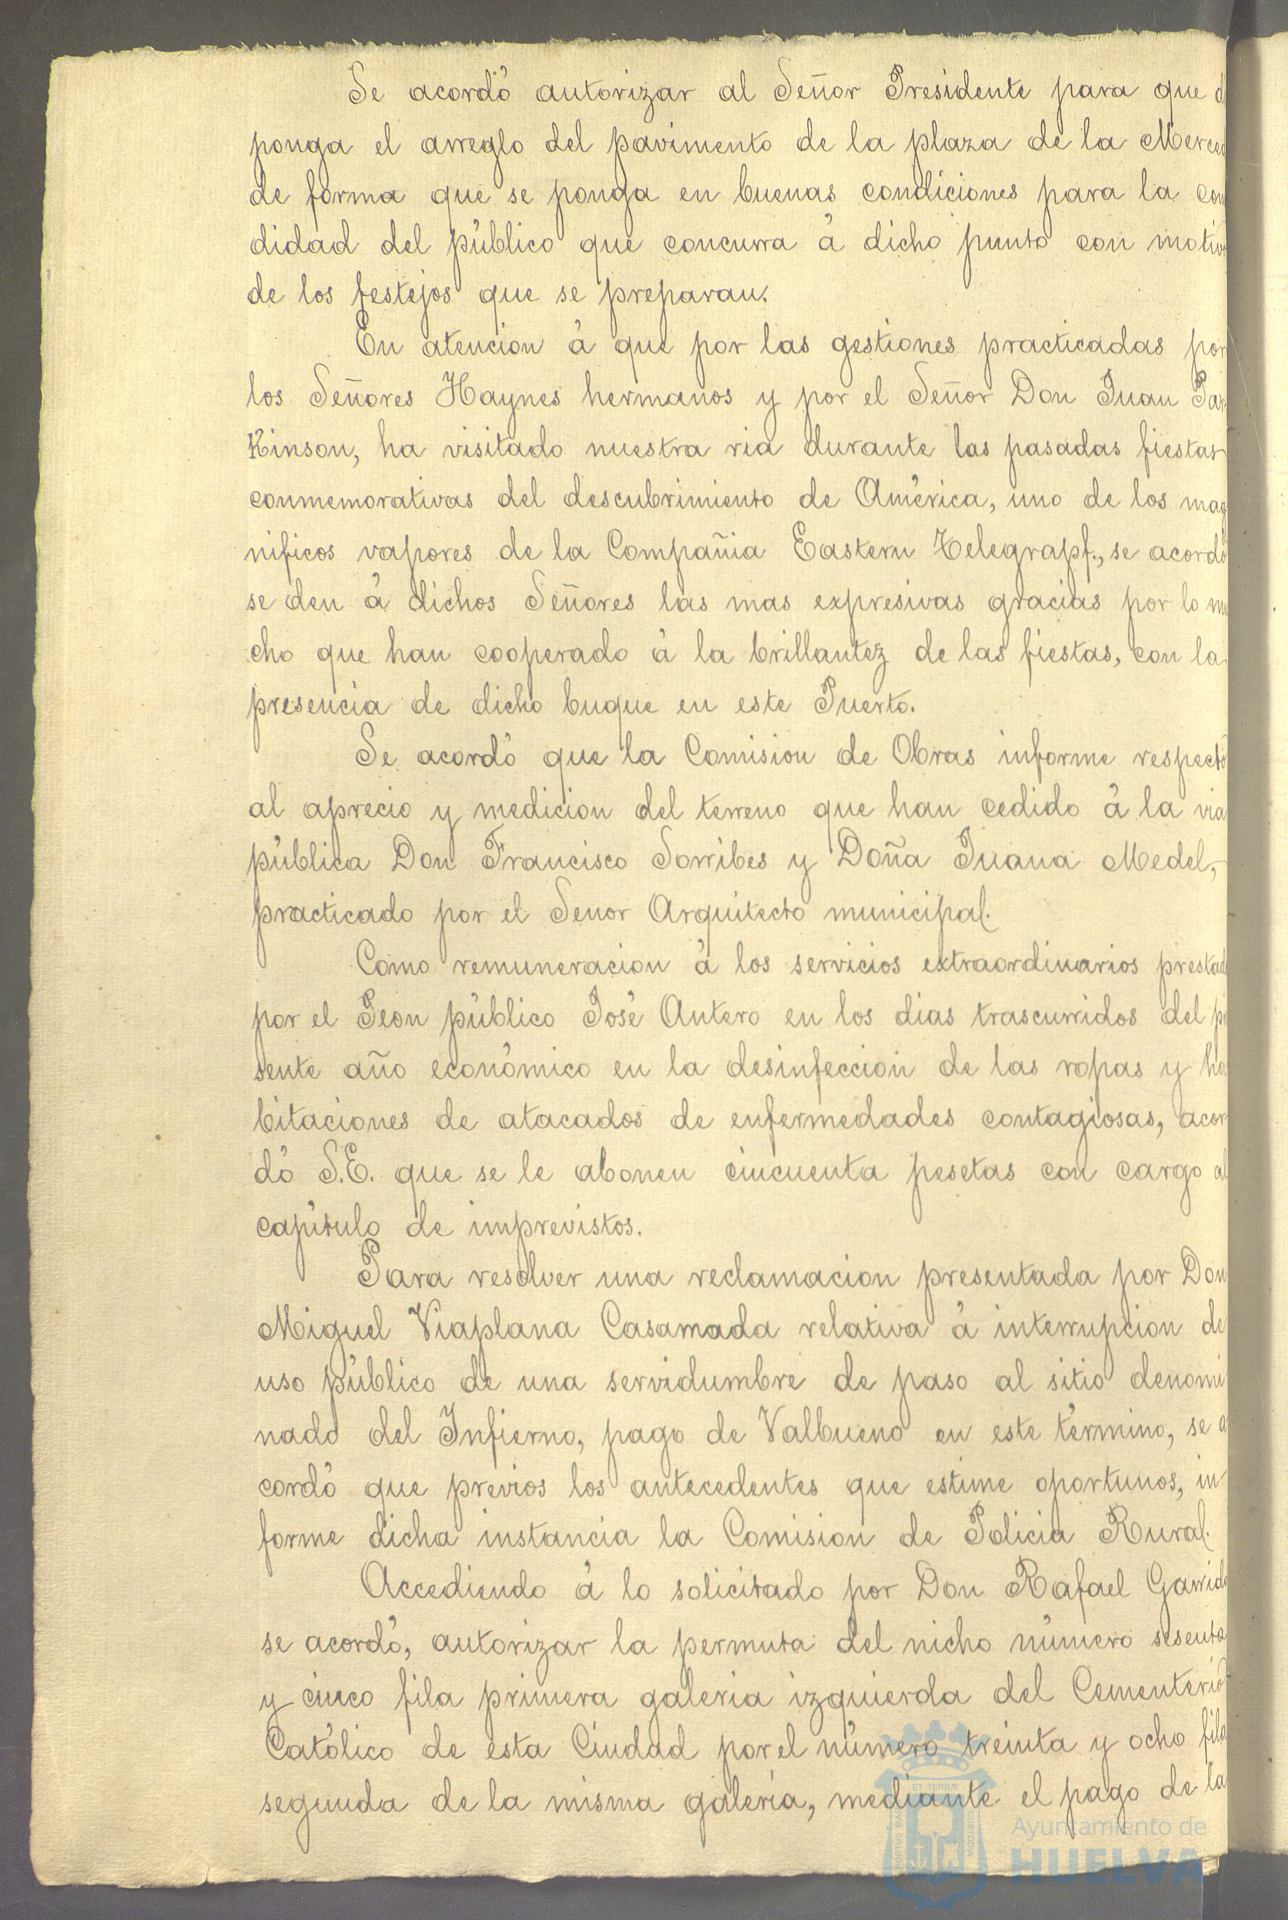 Se acordó autorizar al Señor Presidente para que d
ponga el arreglo del pavimento de la plaza de la Merced
de forma que se ponga en buenas condiciones para la com
didad del público que concurra á dicho punto con motivo
de los festejos que se preparan.
En atencion á que por las gestiones practicadas por
los Señores Haynes hermanos y por el Señor Don Juan Par
Kinson, ha visitado nuestra ria durante las pasadas fiestas
conmemorativas del descubrimiento de América, uno de los mag
nificos vapores de la Compañia Eastern Telegrapf., se acordó
se den á dichos Señores las mas expresivas gracias por lo mu
cho que han cooperado á la brillantez de las fiestas, con la
presencia de dicho buque en este Puerto.
Se acordó que la Comision de Obras informe respecto
al aprecio y medicion del terreno que han cedido á la via
pública Don Francisco Sorribes y Doña Juana Medel,
practicado por el Senor Arquitecto municipal.
Como remuneracion á los servicios extraordinarios prestad
por el Peon público José Antero en los dias trascurridos del pr
sente año económico en la desinfeccion de las ropas y ha
bitaciones de atacados de enfermedades contagiosas, acor
dó S.E. que se le abonen cincuenta pesetas con cargo al
capítulo de imprevistos.
Para resolver una reclamacion presentada por Don
Miguel Viaplana Casamada relativa á interrupcion de
uso público de una servidumbre de paso al sitio denomi
nado del Infierno, pago de Valbueno en este término, se a
cordó que previos los antecedentes que estime oportunos, in-
forme dicha instancia la Comision de Policia Rural.
Accediendo á lo solicitado por Don Rafael Garrido
se acordó, autorizar la permuta del nicho número sesenta
y cinco fila primera galeria izquierda del Cementerio
Católico de esta Ciudad por el número treinta y ocho fila
segunda de la misma galería, mediante el pago de la
Ayuntamiento de
HUELVA